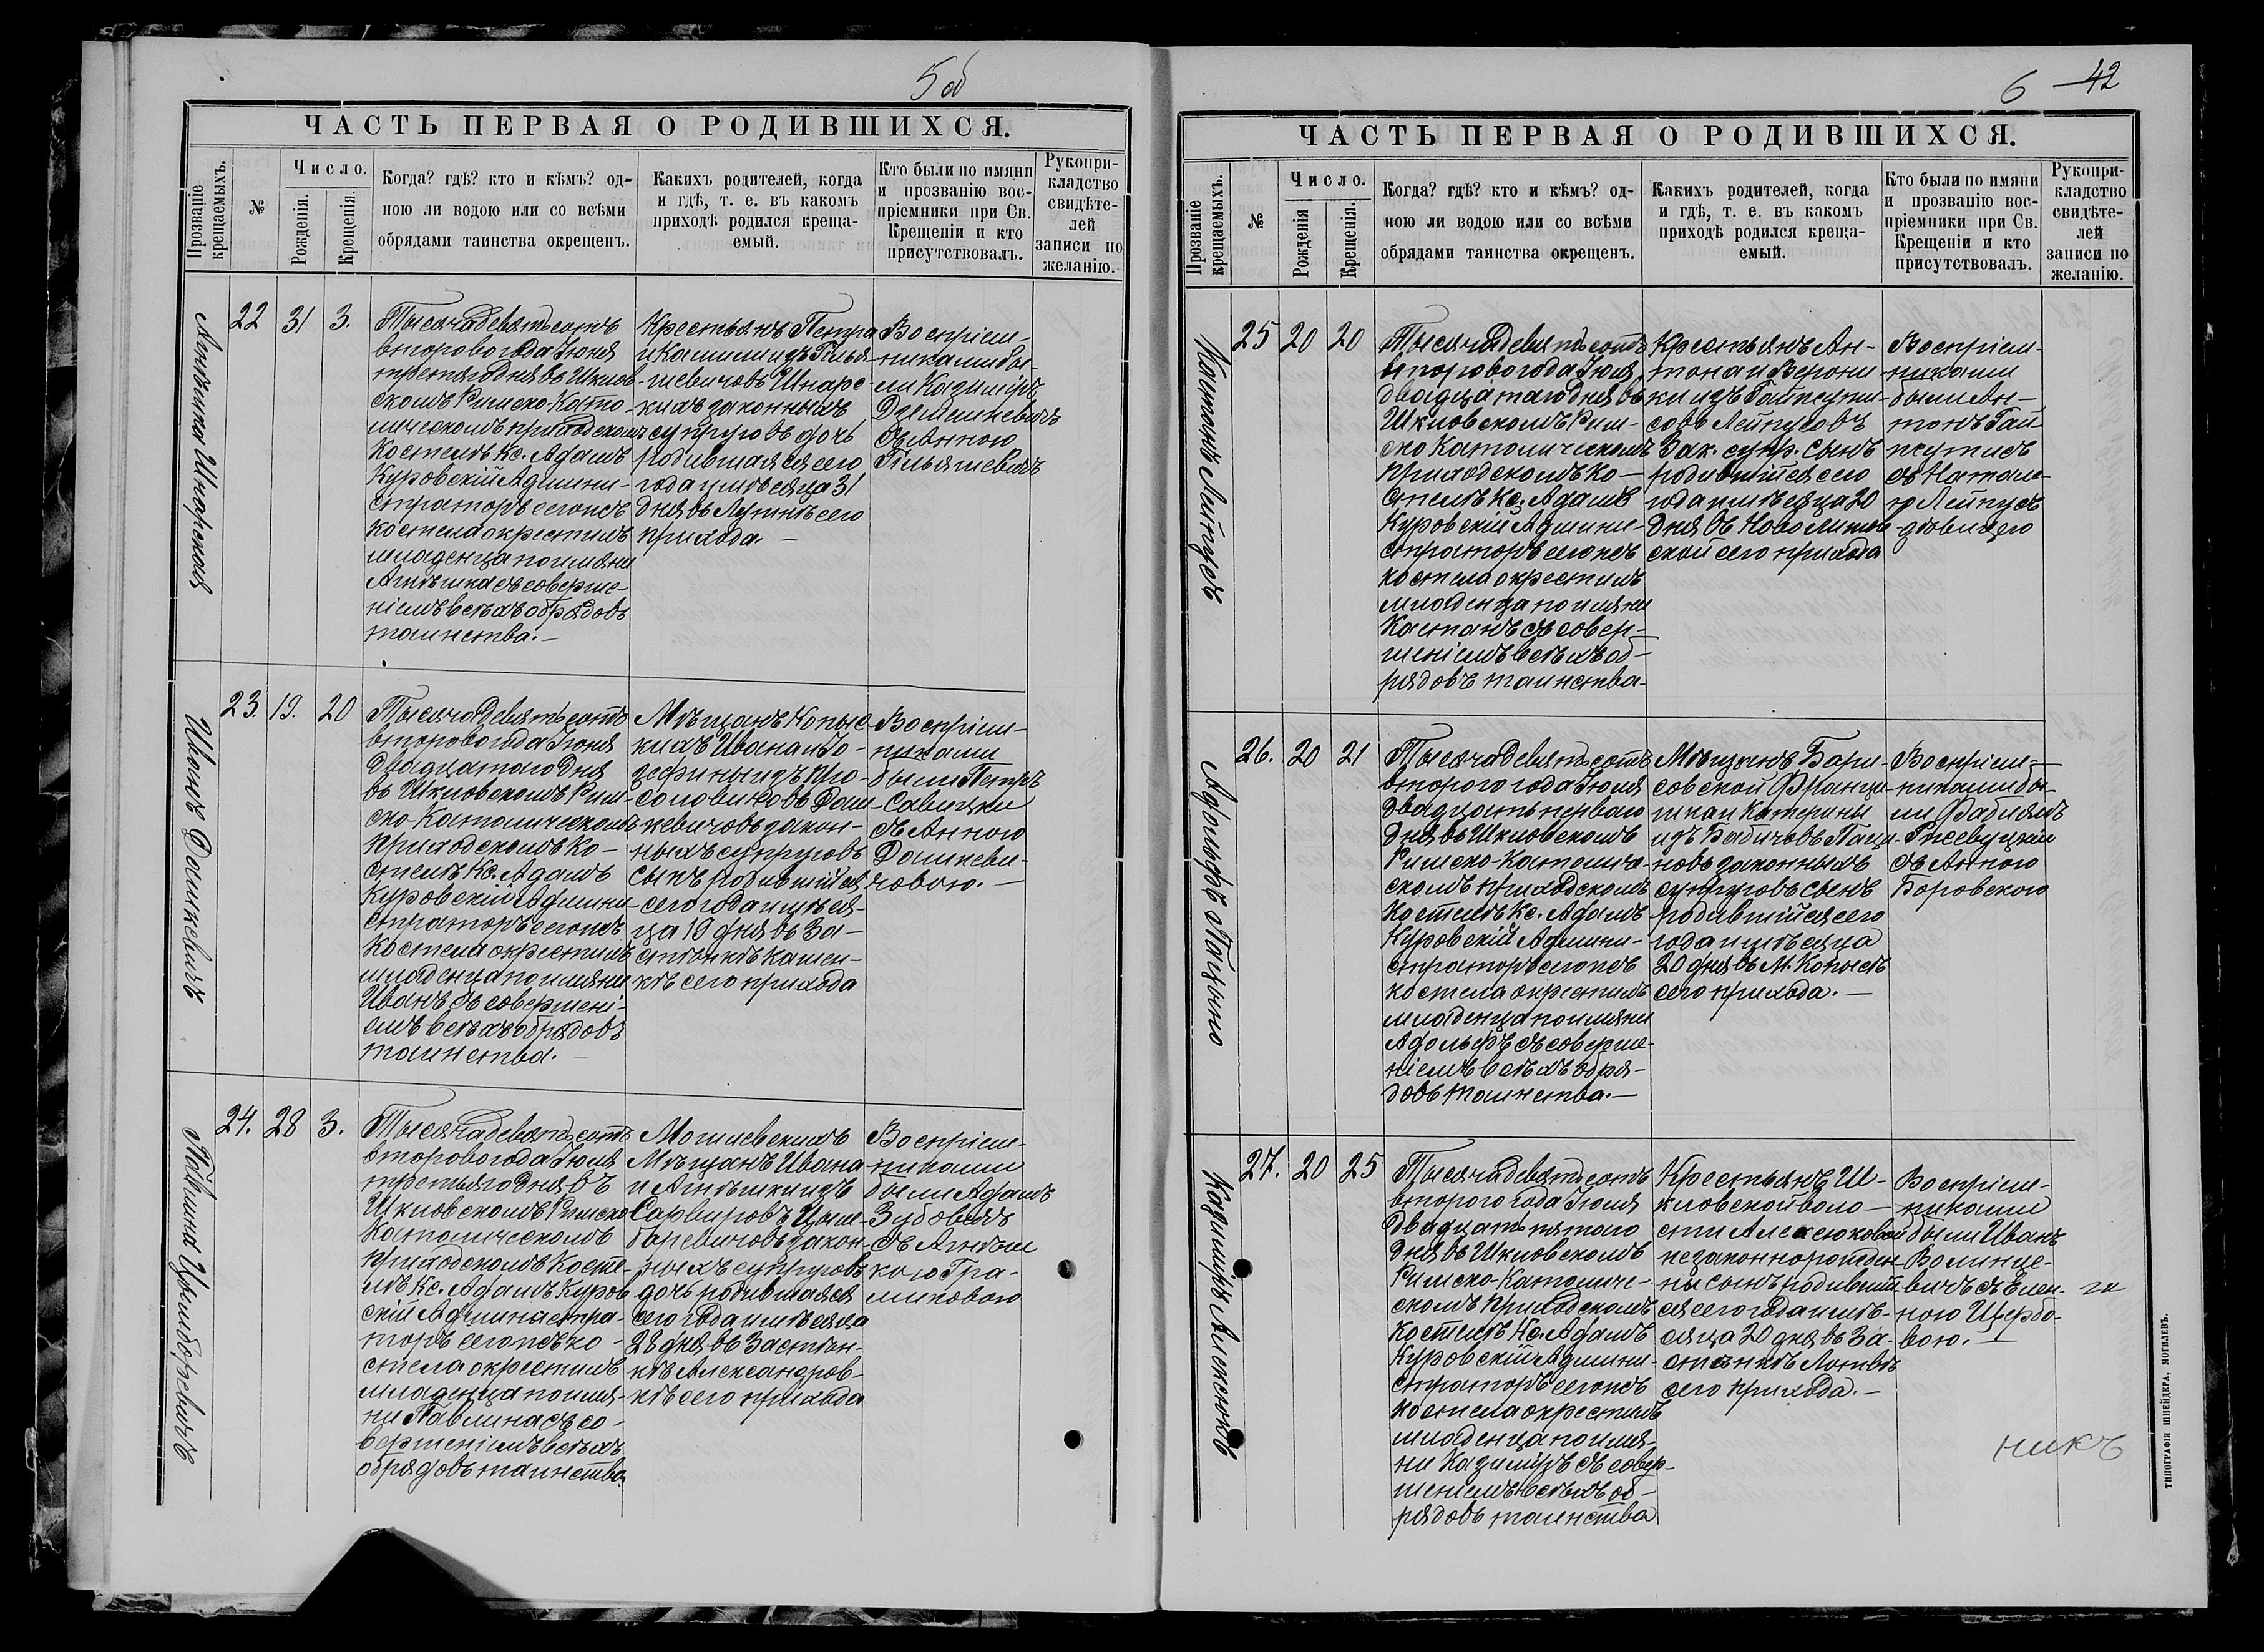 5об
ЧАСТЬ ПЕРВАЯ О РОДИВШИХСЯ.
Прозваніе крещаемыхъ.
№
Число.
Рожденія.
Крещенія.
Когда? гдѣ? кто и кѣмъ? од-
ною ли водою или со всѣми
обрядами таинства окрещенъ.
Какихъ родителей, когда
и гдѣ, т. е. въ какомъ
приходѣ родился креща-
емый.
Кто были по имяни
и прозванію вос-
пріемники при Св.
Крещеніи и кто
присутствовалъ.
Рукопри-
кладство
свидѣте-
лей
записи по
желанію.
Агнѣшка Шнарская
22
31
3.
Тысяча девятьсотъ
второво года Іюня
третяго дня въ Шклов-
скомъ Римско-Като-
лическомъ приходскомъ
Костелѣ Кс. Адамъ
Куровскій Админи-
страторъ сегожъ
костела окрестилъ
младенца по имяни
Агнѣшка съ соверше-
ніемъ всѣхъ обрядовъ
таинства.—
Крестьянъ Петра
и Камили изъ Гилья-
шевичовъ Шнарс-
кихъ законныхъ
супруговъ дочь
родившаяся сего
года и мѣсяца 31
дня въ сего
прихода.—
Воспріем-
никами бы-
ли Казимиръ
съ Анною
Гильяшевичъ
Иванъ Дашкевичъ
23.
19.
20
Тысяча девятьсотъ
второво года Іюня
двадцатаго дня
въ Шкловскомъ Рим-
ско-Католическомъ
приходскомъ ко-
стелѣ Кс. Адамъ
Куровскій Админи-
страторъ сегожъ
костела окрестилъ
младенца по имяни
Иванъ съ совершені-
емъ всѣхъ обрядовъ
таинства.—
Мѣщанъ Копыс-
кихъ Ивана и Іо-
зефины изъ
Даш-
кевичовъ закон-
ныхъ супруговъ
сынъ родившійся
сего года и мѣся-
ца 19 дня въ За-
стѣнкѣ Камен-
кѣ сего прихода
Воспріем-
никами
были Петръ
Савицкій
съ Анною
Дашкеви-
човою.—
Павлина Цымборевичъ
24.
28
3.
Тысяча девятьсотъ
второво года Іюля
третьяго дня въ
Шкловскомъ Римско
Католическомъ
приходскомъ Косте-
лѣ Кс. Адамъ Куров
скій Админастра-
торъ сегожъ ко-
стела окрестилъ
младенца по имя-
ни Павлина съ со-
вершеніемъ всѣхъ
обрядовъ таинства.
Могилевскихъ
Мѣщанъ Ивана
и Агнѣшки изъ
Цым-
баревичовъ закон-
ныхъ супруговъ
дочь родившаяся
сего года и мѣсяца
28 дня въ Застѣн-
кѣ Александров-
кѣ сего прихода
Воспріем-
никами
были Адамъ
съ Агнѣш
кою Гра-
ликовою
6 — 42
ЧАСТЬ ПЕРВАЯ О РОДИВШИХСЯ.
Прозваніе крещаемыхъ.
№
Число.
Рожденія
Крещенія.
Когда? гдѣ? кто и кѣмъ? од-
ною ли водою или со всѣми
обрядами таинства окрещенъ.
Какихъ родителей, когда
и гдѣ, т. е. въ какомъ
приходѣ родился креща-
емый.
Кто были по имяни
и прозванію вос-
пріемники при Св.
Крещеніи и кто
присутствовалъ.
Рукопри-
кладство
свидѣте-
лей
записи по
желанію.
Кастанъ Лейпусъ
25
20
20
Тысяча девятьсотъ
второво года Іюля
двадцатаго дня въ
Шкловскомъ Рим-
ско Католическомъ
приходскомъ ко-
стелѣ Кс. Адамъ
Куровскій Админи-
страторъ сегожъ
костела окрестилъ
младенца по имяни
Кастанъ съ совер-
шеніемъ всѣхъ об-
рядовъ таинства-
Крестьянъ Ан-
тона и Верони-
ки изъ
совъ Лейпусовъ
Зак. супр. сынъ
родившійся сего
года и мѣсяца 20
дня въ
ской сего прихода
Воспріем-
никами
были Ан-
тонъ Гай
съ Наталь-
ю Лейпусъ
дѣвицею
Адольфъ Пацыно
26.
20
21
Тысяча девятьсотъ
второго года Іюля
двадцать перваго
дня въ Шкловскомъ
Римско-Католиче-
скомъ приходскомъ
Костелѣ Кс. Адамъ
Куровскій Админи-
страторъ сегожъ
костела окрестилъ
младенца по имяни
Адольфъ съ соверше-
ніемъ всѣхъ обря-
довъ таинства.—
Мѣщанъ Бори-
совской Франци-
шка и Катерины
изъ Бабичовъ Паци-
новъ законныхъ
супруговъ сынъ
родившійся сего
года и мѣсяца
20 дня въ М. Копысѣ
сего прихода.—
Воспріем-
никами бы-
ли Фабіянъ
Ржевуцкій
съ Анною
Боровскою
Казимиръ Алексюковъ
27.
20
25
Тысяча девятьсотъ
второго года Іюля
двадцать пятого
дня въ Шкловскомъ
Римско-Католиче-
скомъ приходскомъ
костелѣ Кс. Адамъ
Куровскій Админи-
страторъ сегожъ
костела окрестилъ
младенца по имя-
ни Казимиръ съ совер-
шеніемъ всѣхъ об-
рядовъ таинства
Крестьянъ Ш-
кловской воло-
сти Алексюковой
незаконнорожден-
ны сынъ родивший
ся сего года и мѣ-
сяца 20 дня въ За-
стѣнкѣ
сего прихода.—
Воспріем-
никами
были Иванъ
Волынце-
вичъ съ Елен-
ною Щербо-
вою.—
никъ
ТИПОГРАФІЯ ШНЕЙДЕРА, МОГИЛЕВЪ.